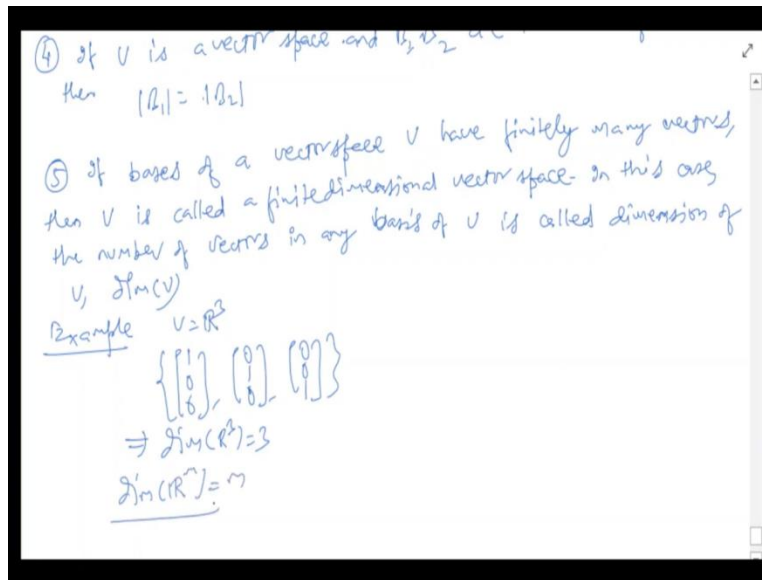 ④ If V is a vector space and B₁ B₂
then |B₁| = |B₂|
⑤ If bases of a vectorspace V have finitely many vectors,
then V is called a finitedimensional vector space. In this case,
the number of vectors in any basis of V is called dimension of
V, dim(V)
Example V=R³
{[1 0 0], [0 1 0], [0 0 1]}
⇒ dim(R³)=3
dim(Rⁿ)=n